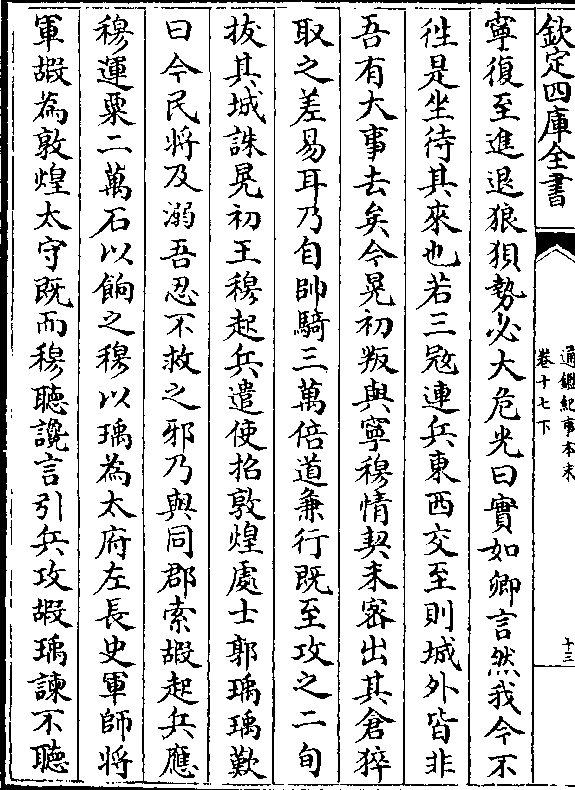 欽定四庫全書
通鑑紀事本末
卷十七下
十三
寧復至進退狼狽勢必大危光曰實如卿言然我今不
徃是坐待其來也若三寇連兵東西交至則城外皆非
吾有大事去矣今晃初叛與寧穆情契未密出其倉猝
取之差易耳乃自帥騎三萬倍道兼行既至攻之二旬
拔其城誅晃初王穆起兵遣使招敦煌處士郭瑀瑀歎
曰今民將及溺吾忍不救之邪乃與同郡索嘏起兵應
穆運粟二萬石以餉之穆以瑀為太府左長史軍師將
軍嘏為敦煌太守既而穆聽讒言引兵攻嘏瑀諫不聽